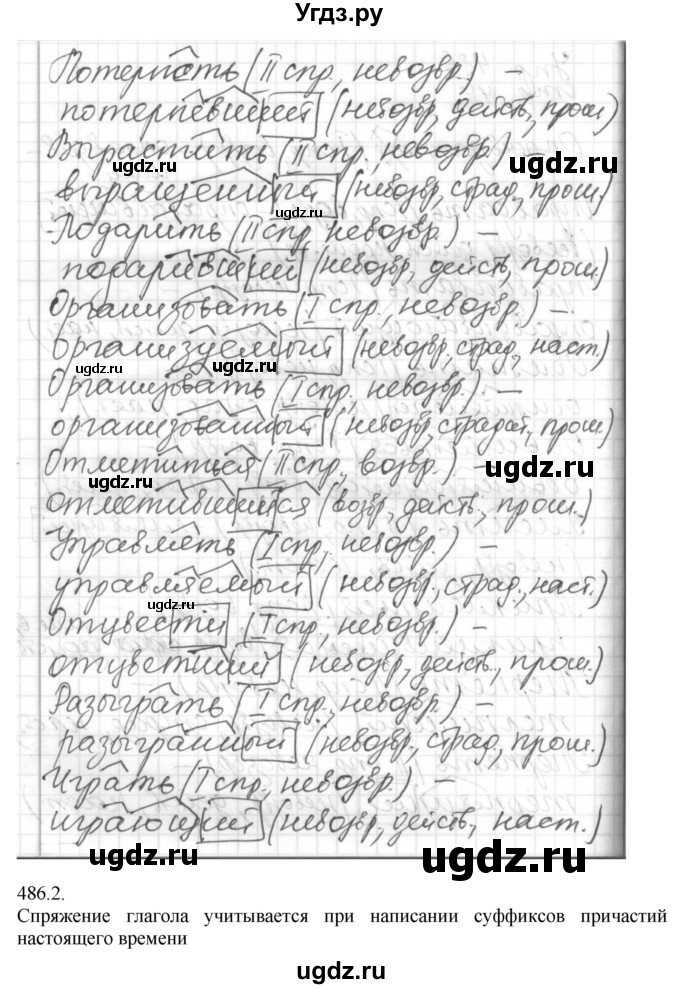 Угдз.ру
Потерпеть (II спр., невозвр.) –
потерпевший (невозвр, действ, прош.)
Вырастить (II спр., невозвр.) –
ugdz.ru
выращенный (невозвр, страд, прош.)
ugdz.ru
ugdz.ru
Подарить (II спр невозвр.) –
подаривший (невозвр, действ, прош.)
ugdz.ru
Организовать (I спр, невозвр.) –
организуемый (невозвр. страд, наст.)
ugdz.ru
ugdz.ru
Организовать (I спр, невозвр.) –
организованный (невозвр, страдат, прош.)
Отметиться (II спр., возвр.) –
ugdz.ru
отметившийся (возвр, действ., прош.)
Управлять (I спр, невозвр.) –
управляемый (невозвр, страд., наст.)
ugdz.ru
Отцвести (I спр., невозвр.) –
отцветший (невозвр, действ., прош.)
Разыграть (I спр., невозвр.) –
разыгранный (невозвр., страд, прош.)
ugdz.ru
Играть (I спр., невозвр.) –
играющий (невозвр, действ, наст.)
ugdz.ru
ugdz.ru
486.2.
Спряжение глагола учитывается при написании суффиксов причастий
настоящего времени
ugdz.ru